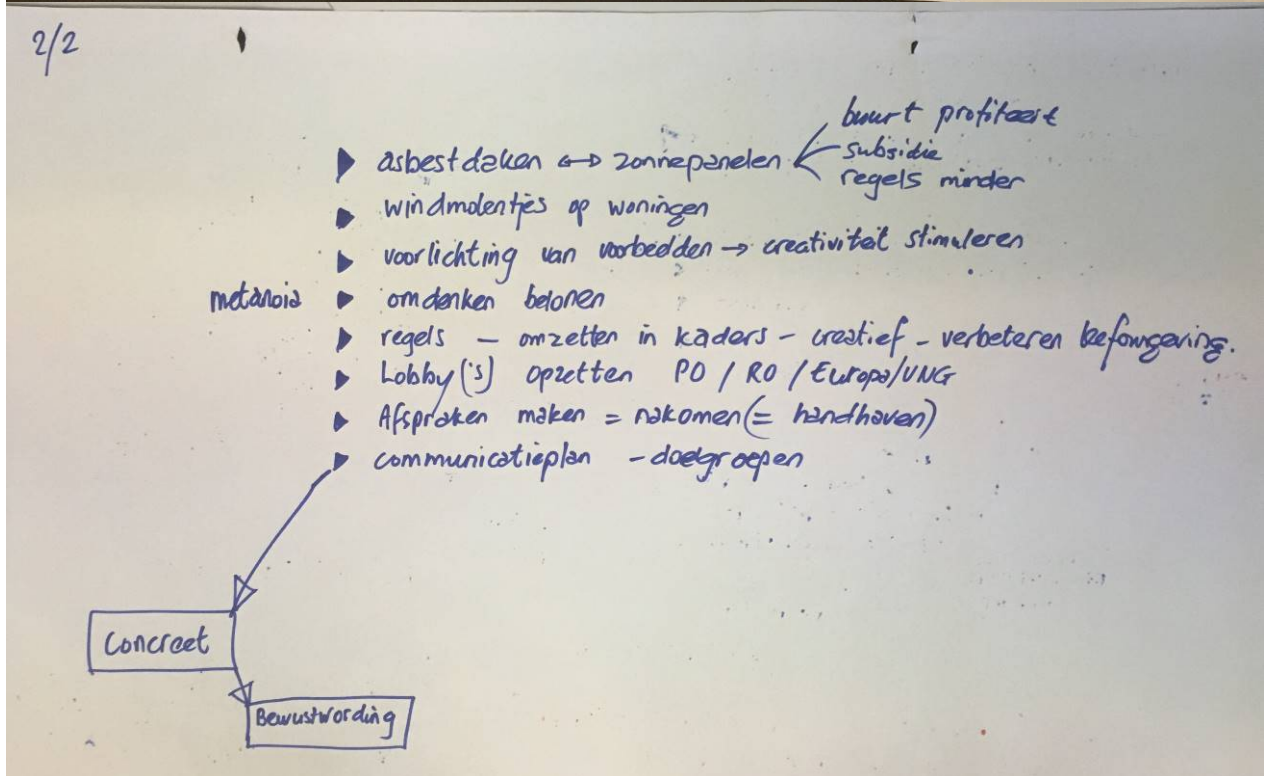 2/2
buurt profiteert
▶ asbestdaken ↔ zonnepanelen subsidie
regels minder
▶ windmolentjes op woningen
▶ voorlichting van voorbeelden → creativiteit stimuleren
metanoia ▶ omdenken belonen
▶ regels - omzetten in kaders - creatief - verbeteren leefomgeving.
▶ Lobby('s) opzetten PO / RO / Europa/VNG
▶ Afspraken maken = nakomen (= handhaven)
▶ communicatieplan - doelgroepen
Concreet
Bewustwording